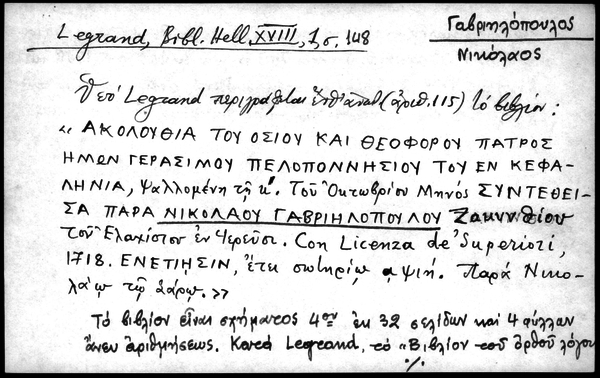 Γαβριηλόπουλος
Νικόλαος
Legrand, Bibl. Hell. XVIII, 1, σ. 148
Ὑπὸ Legrand περιγράφεται ἐνθ' ἀνωτ (ἀριθ. 115) τὸ βιβλίον:
« ΑΚΟΛΟΥΘΙΑ ΤΟΥ ΟΣΙΟΥ ΚΑΙ ΘΕΟΦΟΡΟΥ ΠΑΤΡΟΣ
ΗΜΩΝ ΓΕΡΑΣΙΜΟΥ ΠΕΛΟΠΟΝΝΗΣΙΟΥ ΤΟΥ ΕΝ ΚΕΦΑ-
ΛΗΝΙΑ, ψαλλομένη τῇ κ'. Τοῦ Ὀκτωβρίου Μηνός ΣΥΝΤΕΘΕΙ-
ΣΑ ΠΑΡΑ ΝΙΚΟΛΑΟΥ ΓΑΒΡΙΗΛΟΠΟΥΛΟΥ Ζακυνθίου
τοῦ Ἐλαχίστου ἐν Ἱερεῦσι. Con Licenza de' Superiori,
1718. ΕΝΕΤΙΗΣΙΝ, ἔτει σωτηρίῳ αψιή. Παρὰ Νικο-
λάῳ τῷ Σάρῳ. »
Τὸ βιβλίον εἶναι σχήματος 4ου ἐκ 32 σελίδων καὶ 4 φύλλων
ἄνευ ἀριθμήσεως. Κατὰ Legrand, τὸ «Βιβλίον τοῦ ὀρθοῦ λόγου
./.